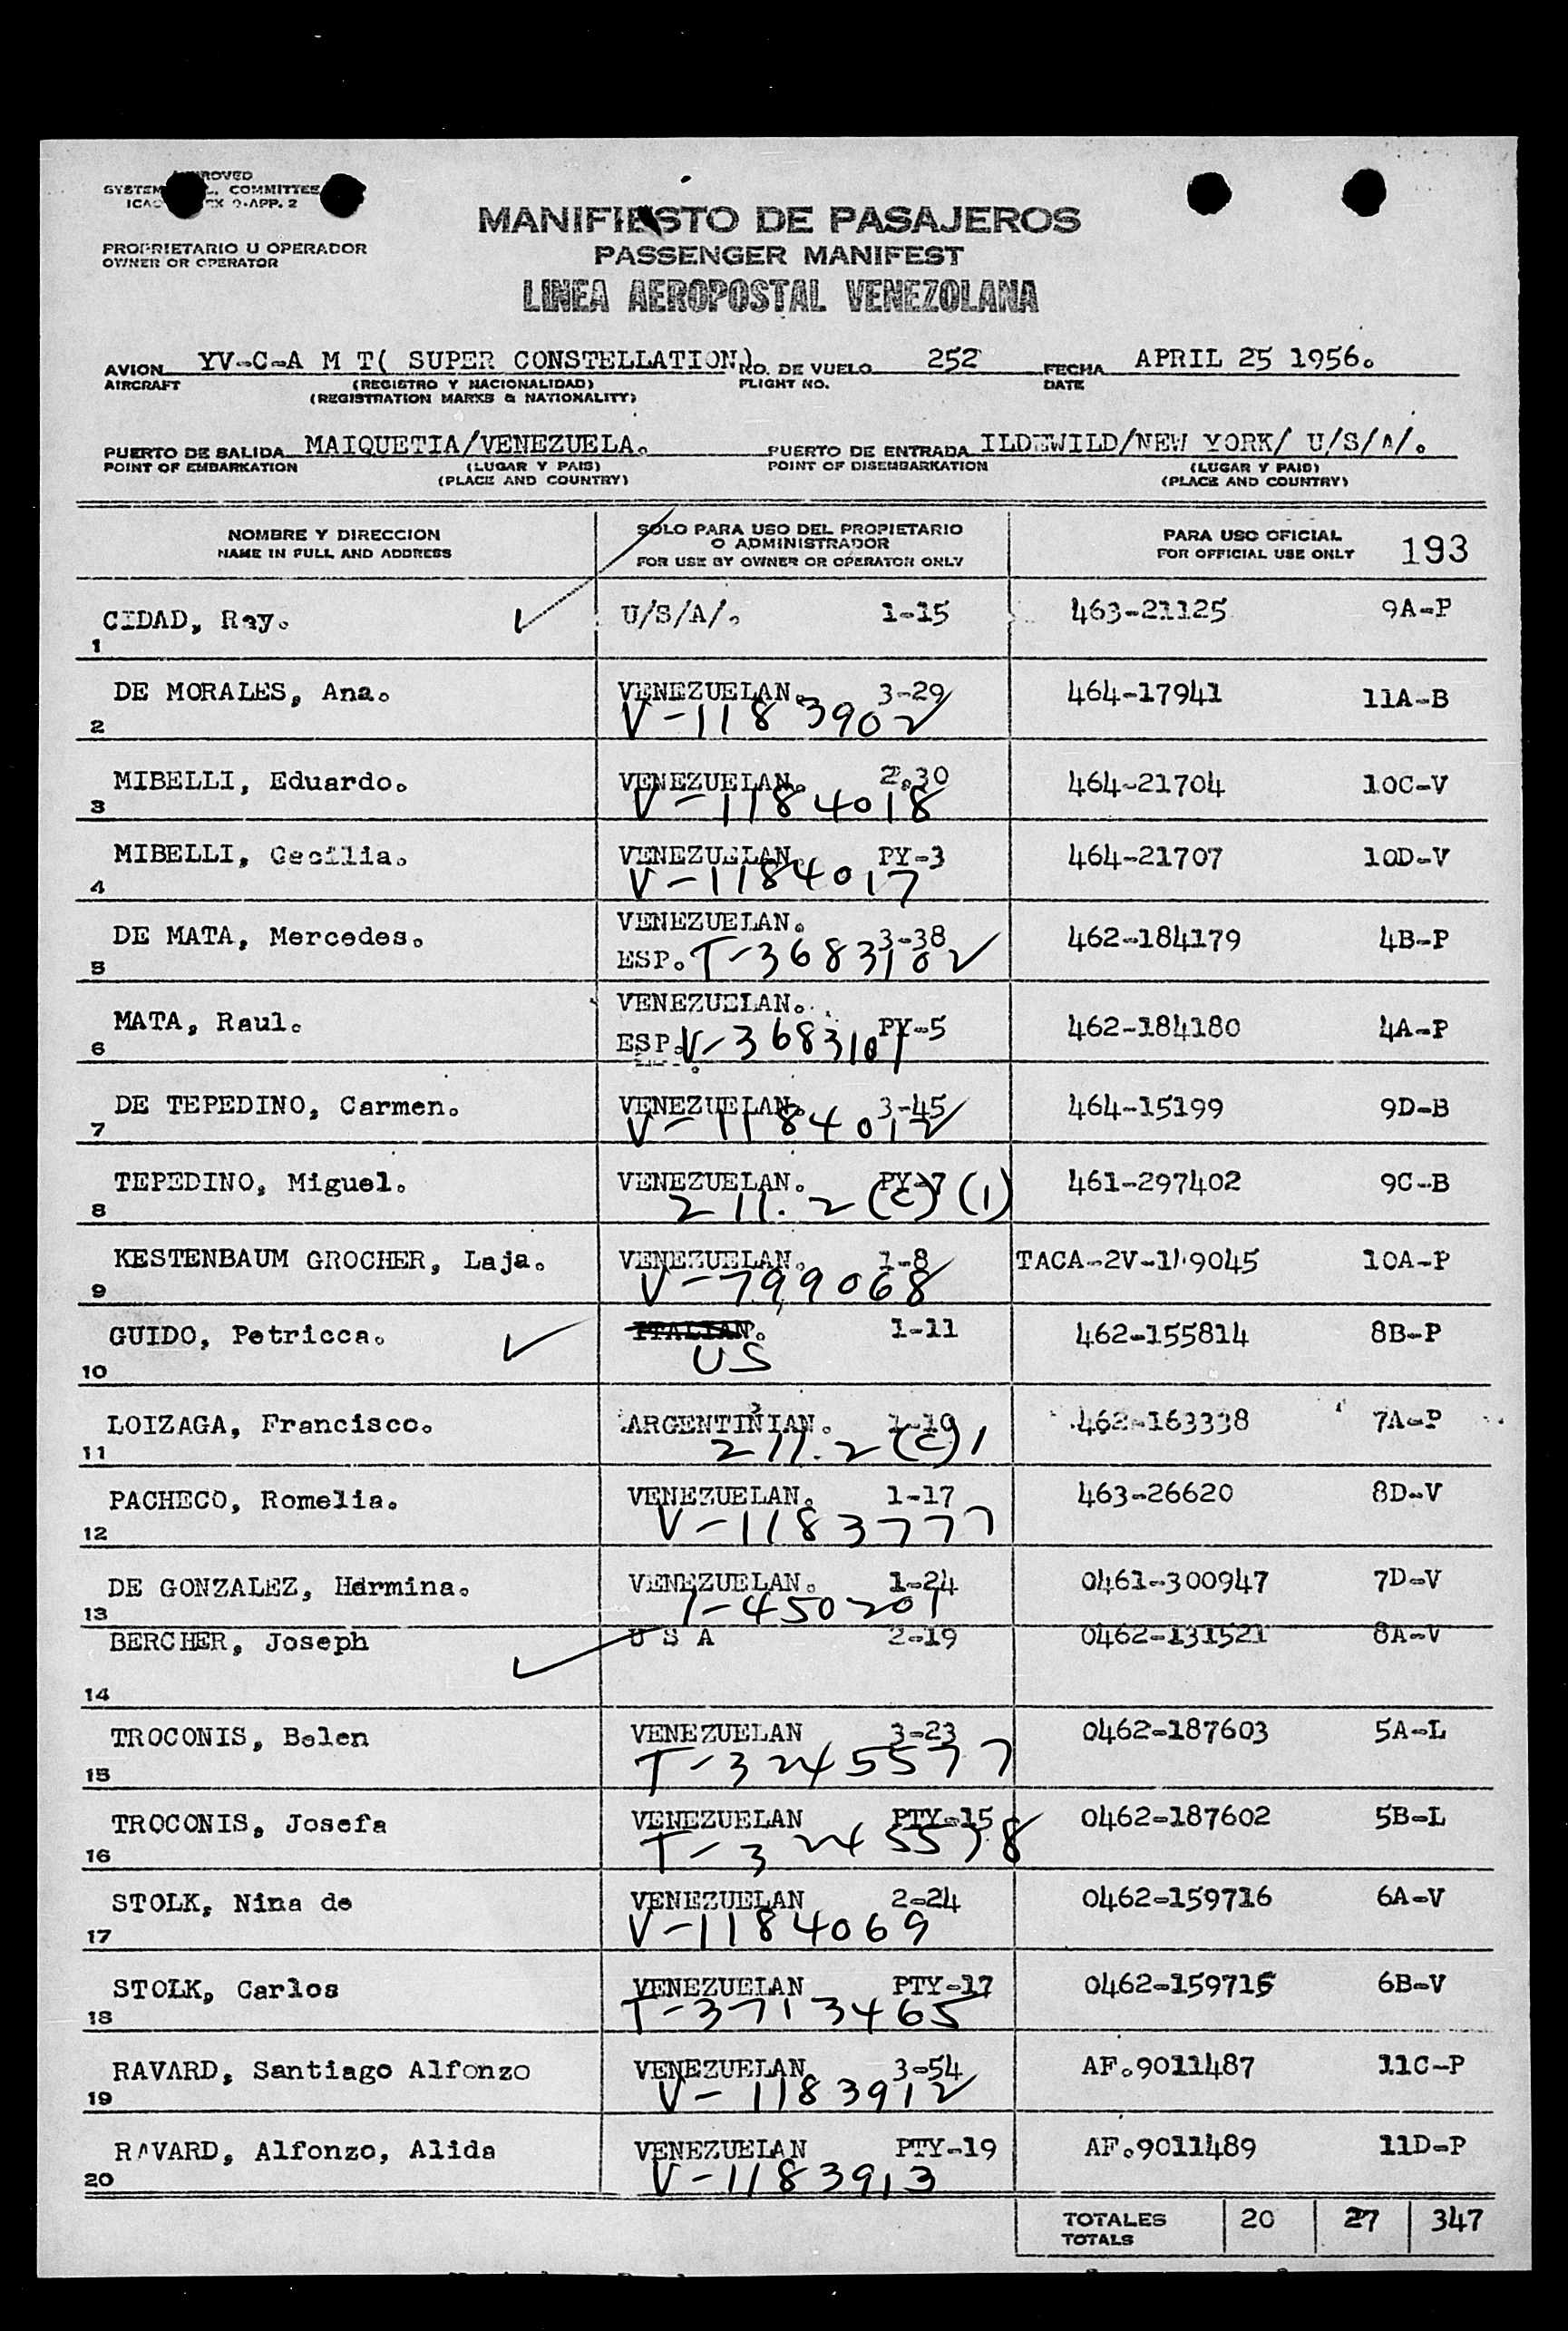 SYSTEM COMMITTEE
9-APP. 2
PROPRIETARIO U OPERADOR
OWNER OR OPERATOR
MANIFIESTO DE PASAJEROS
PASSENGER MANIFEST
LINEA AEROPOSTAL VENEZOLANA
AVION YV-C-A M T( SUPER CONSTELLATION) NO. DE VUELO 252 FECHA APRIL 25 1956.
AIRCRAFT (REGISTRO Y NACIONALIDAD) FLIGHT NO. DATE
(REGISTRATION MARKS & NATIONALITY)
PUERTO DE SALIDA MAIQUETIA/VENEZUELA. PUERTO DE ENTRADA ILDEWILD/NEW YORK/ U/S/A/.
POINT OF EMBARKATION (LUGAR Y PAIS) POINT OF DISEMBARKATION (LUGAR Y PAIS)
(PLACE AND COUNTRY) (PLACE AND COUNTRY)
NOMBRE Y DIRECCION SOLO PARA USO DEL PROPIETARIO PARA USO OFICIAL
NAME IN FULL AND ADDRESS O ADMINISTRADOR FOR OFFICIAL USE ONLY 193
FOR USE BY OWNER OR OPERATOR ONLY
CIDAD, Ray. U/S/A/. 1-15 463-21125 9A-P
1
DE MORALES, Ana. VENEZUELAN. 3-29 464-17941 11A-B
2 V-1183902
MIBELLI, Eduardo. VENEZUELAN. 2.30 464-21704 10C-V
3 V-1184018
MIBELLI, Cecilia. VENEZUELAN. PY-3 464-21707 10D-V
4 V-1184017
VENEZUELAN.
DE MATA, Mercedes. 3-38 462-184179 4B-P
5 ESP. T-3683102
VENEZUELAN.
MATA, Raul. PY-5 462-184180 4A-P
6 ESP. V-3683101
DE TEPEDINO, Carmen. VENEZUELAN. 3-45 464-15199 9D-B
7 V-1184012
TEPEDINO, Miguel. VENEZUELAN. PY-7 461-297402 9C-B
8 211.2(c)(1)
KESTENBAUM GROCHER, Laja. VENEZUELAN. 1-8 TACA-2V-149045 10A-P
9 V-799068
GUIDO, Petricca. ITALIAN. 1-11 462-155814 8B-P
10 US
LOIZAGA, Francisco. ARGENTINIAN. 1-10 462-163338 7A-P
11 211.2(c)1
PACHECO, Romelia. VENEZUELAN. 1-17 463-26620 8D-V
12 V-1183777
DE GONZALEZ, Hermina. VENEZUELAN. 1-24 0461-300947 7D-V
13 I-450201
BERCHER, Joseph U S A 2-19 0462-131521 8A-V
14
TROCONIS, Belen VENEZUELAN 3-23 0462-187603 5A-L
15 T-3245577
TROCONIS, Josefa VENEZUELAN PTY-15 0462-187602 5B-L
16 T-3245578
STOLK, Nina de VENEZUELAN 2-24 0462-159716 6A-V
17 V-1184069
STOLK, Carlos VENEZUELAN PTY-17 0462-159715 6B-V
18 T-3713465
RAVARD, Santiago Alfonzo VENEZUELAN 3-54 AF.9011487 11C-P
19 V-1183912
RAVARD, Alfonzo, Alida VENEZUELAN PTY-19 AF.9011489 11D-P
20 V-1183913
TOTALES 20 27 347
TOTALS